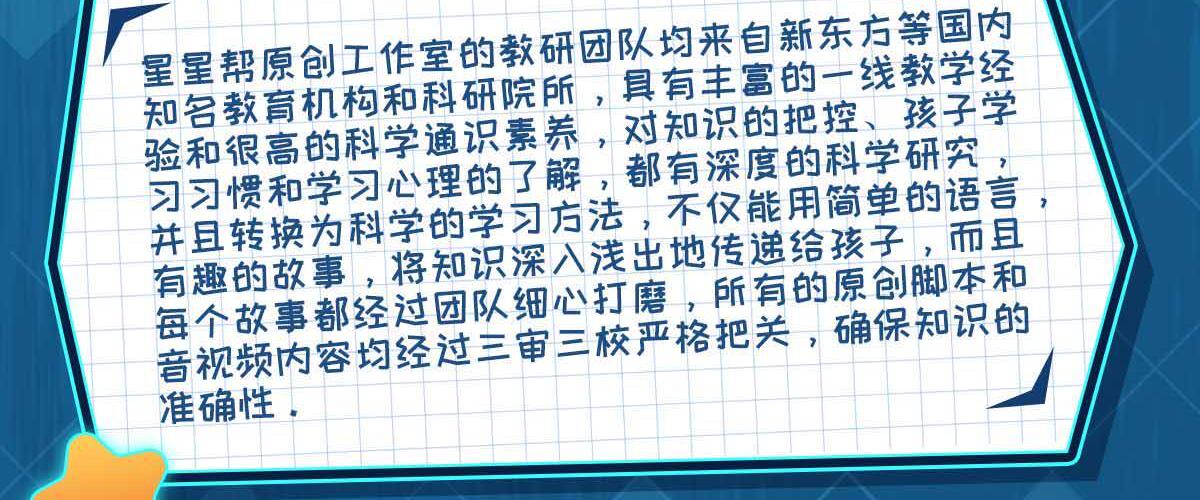 星星帮原创工作室的教研团队均来自新东方等国内
知名教育机构和科研院所，具有丰富的一线教学经
验和很高的科学通识素养，对知识的把控、孩子学
习习惯和学习心理的了解，都有深度的科学研究，
并且转换为科学的学习方法，不仅能用简单的语言，
有趣的故事，将知识深入浅出地传递给孩子，而且
每个故事都经过团队细心打磨，所有的原创脚本和
音视频内容均经过三审三校严格把关，确保知识的
准确性．